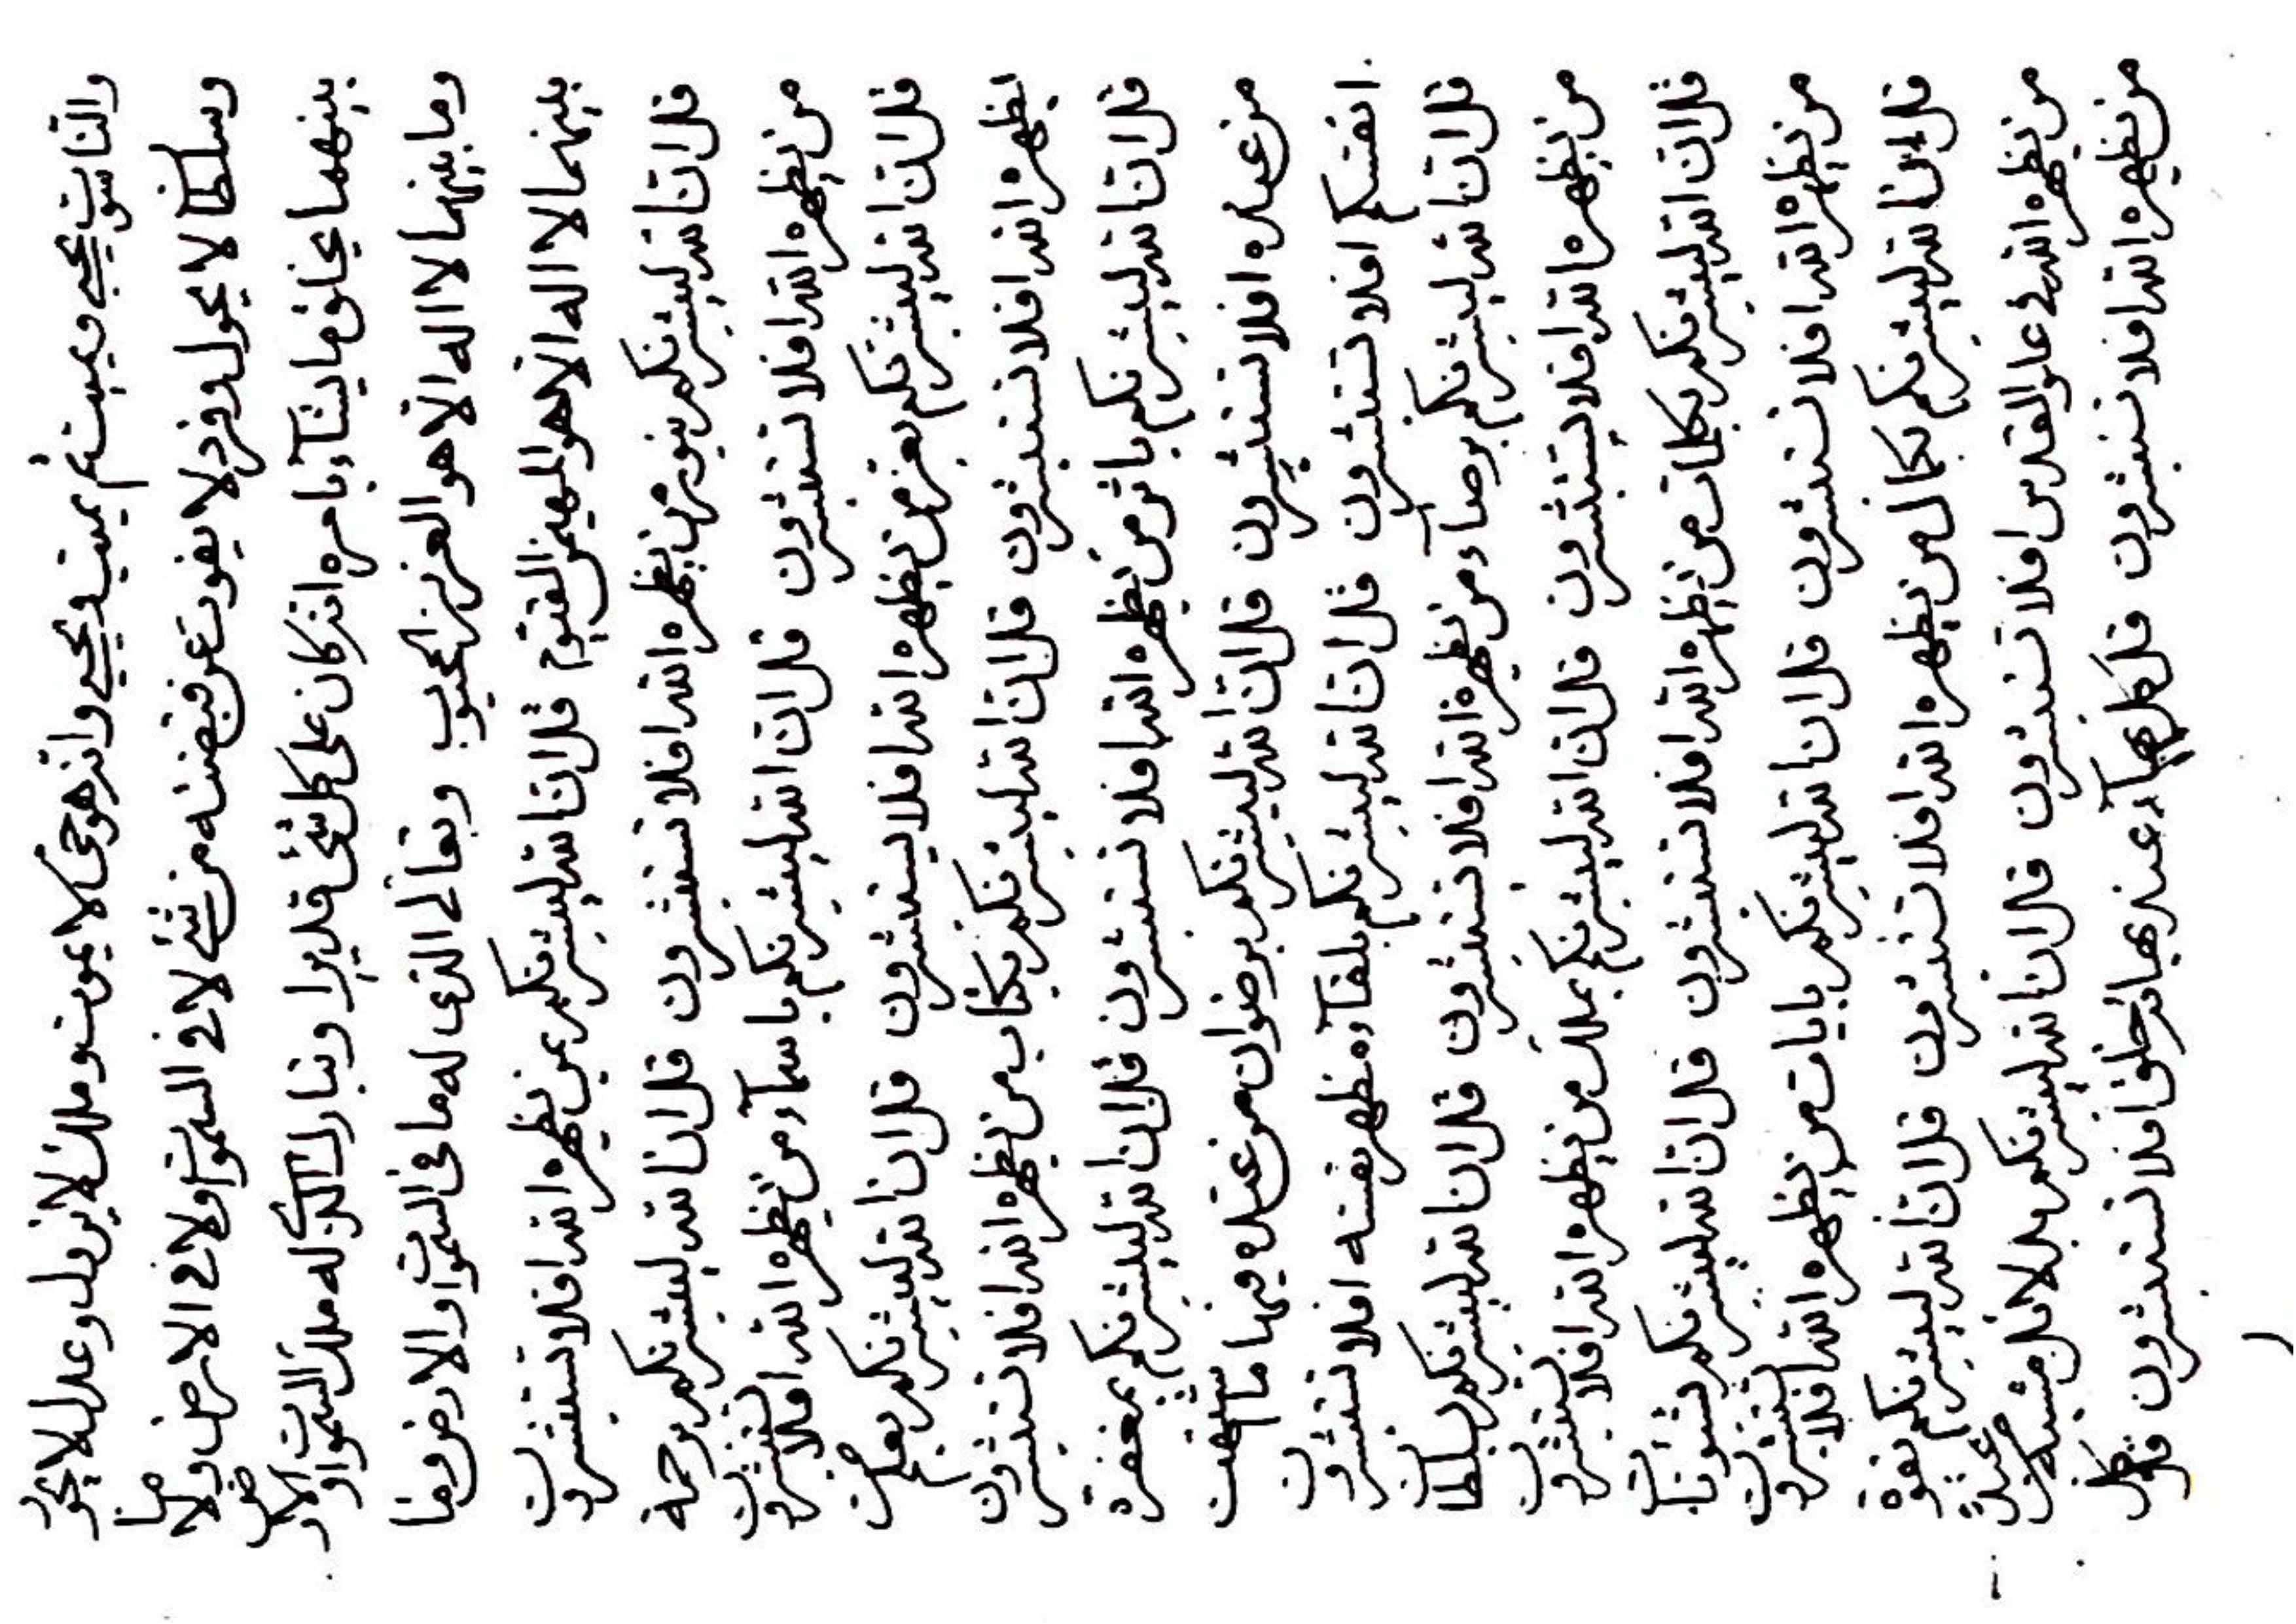 والناسوت يحيي ويميت ثم يميت ويحيي وانه هو حي لا يموت وملك لا يزول وعدل لا يجور
وسلطا لا يحول وفرد لا يفوت عن قبضته من شئ لا في السموات ولا في الارض ولا ما
بينهما يخلق ما يشآء بامره انه كان على كل شئ قديرا وتبارك الذي له ملك السموات والارض
وما بينهما لا اله الا هو العزيز المحبوب وتعالى الذى له ما فى السموات والارض وما
بينهما لا اله الا هو المهيمن القيوم قل ان الله ليبشرنكم بمن يظهره الله افلا تستبشرون
قل ان الله ليبشرنكم بنور من يظهره الله افلا تستبشرون قل ان الله ليبشرنكم برحمة
من يظهره الله افلا تستبشرون قل ان الله ليبشرنكم باسمآء من يظهره الله افلا تستبشرون
قل ان الله ليبشرنكم بعز من يظهره الله افلا تستبشرون قل ان الله ليبشرنكم بعلم من
يظهره الله افلا تستبشرون قل ان الله ليبشرنكم بكتاب من يظهره الله افلا تستبشرون
قل ان الله ليبشرنكم باثر من يظهره الله افلا تستبشرون قل ان الله ليبشرنكم بمغفرة
من عنده افلا تستبشرون قل ان الله ليبشرنكم برضوان من عنده فيها ما
انفسكم افلا تستبشرون قل ان الله ليبشرنكم بلقآء مظهر نفسه افلا تستبشرون
قل ان الله ليبشرنكم برضآء من يظهره الله افلا تستبشرون قل ان الله ليبشرنكم بسلطان
من يظهره الله افلا تستبشرون قل ان الله ليبشرنكم بملك من يظهره الله افلا تستبشرون
قل ان الله ليبشرنكم بكلمات من يظهره الله افلا تستبشرون قل ان الله ليبشرنكم بشئونات
من يظهره الله افلا تستبشرون قل ان الله ليبشرنكم بايات من يظهره الله افلا تستبشرون
قل ان الله ليبشرنكم بكمال من يظهره الله افلا تستبشرون قل ان الله ليبشرنكم بقوة
من يظهره الله في علو القدس افلا تستبشرون قل ان الله ليبشرنكم
من يظهره الله افلا تستبشرون قل كل بهآء عند بهائه خلق افلا تستبشرون قل كل